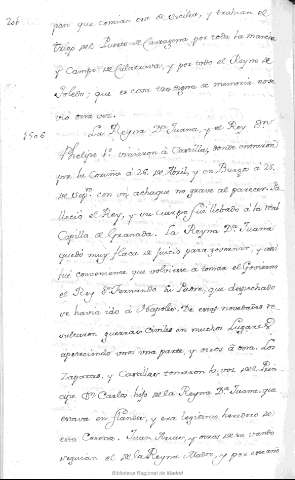 206
pan que comian era de Sicilia, y trahian el
trigo del Puerto de Cartagena, por toda la mancha
y Campo de Calatrava, y por todo el Reyno de
Toledo; que es cosa tan digna de memoria no se
vio otra vez.
1506
La Reyna Dª. Juana, y el Rey Dn.
Phelipe 1º. vinieron à Castilla, donde entraron
por la Coruña à 26. de Abril, y en Burgos à 25.
de Sepre. con un achaque no grave al parecer fa
lleciò el Rey, y su cuerpo fuè llebado à la Real
Capilla de Granada. La Reyna Dª. Juana
quedò muy flaca de juicio para governar, y assi
fuè conveniente que volviesse à tomar el Govierno
el Rey Dn. Fernando su Padre, que despechado
se havia ido à Napoles. De estas novedades re-
sultaron guerras Civiles en muchos Lugares
apeteciendo unos una parte, y otros à otra. Los
Zagatas, y Castillas tomaron la voz del Prin
cipe Dn. Carlos hijo de la Reyna Dª. Juana, que
estava en flandes, y era legitimo heredero de
esta Corona. Juan y otros de su vando
seguian el de la Reyna Madre, y por este año
Biblioteca Regional de Madrid